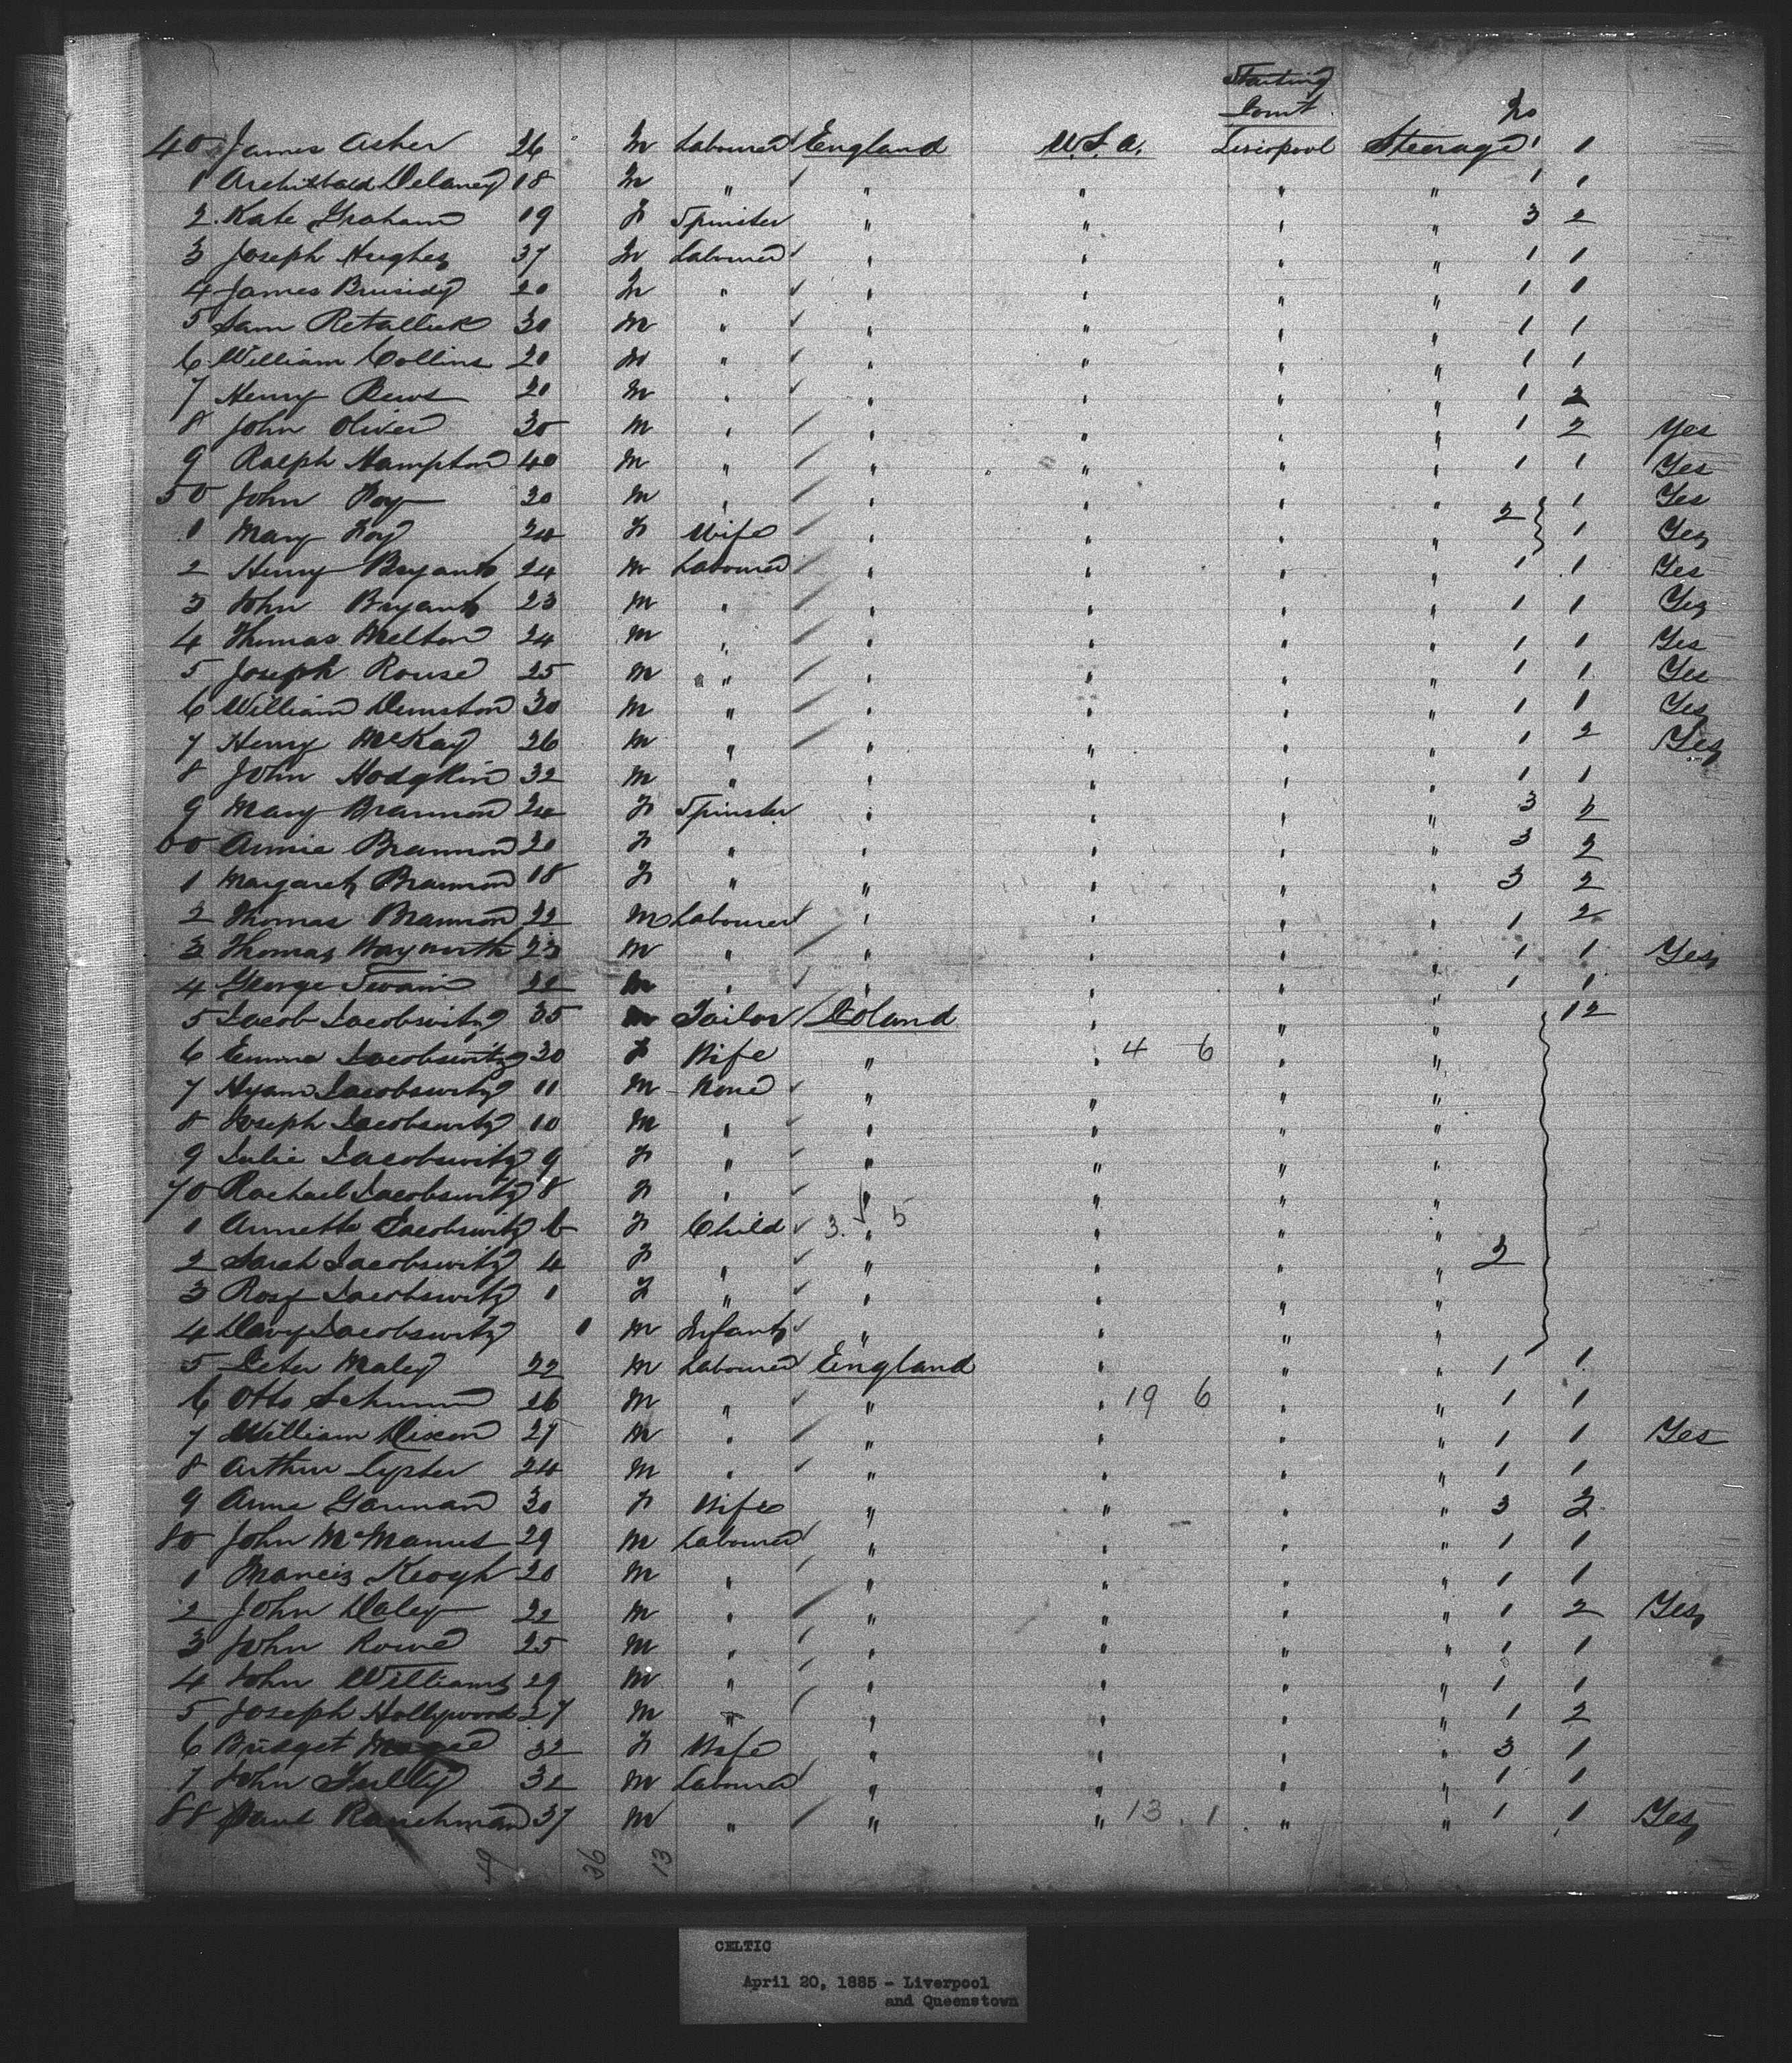 Starting
Point No
40 James Asher 26 M Labourer England U.S.A. Liverpool Steerage 1 1
1 Archibald Delaney 18 M " " " " " 1 1
2 Kate Graham 19 F Spinster " " " " 3 2
3 Joseph Hughes 37 M Labourer " " " " 1 1
4 James 20 M " " " " " 1 1
5 Sam Retallick 30 M " " " " " 1 1
6 William Collins 20 M " " " " " 1 1
7 Henry Rews 20 M " " " " " 1 2
8 John Oliver 30 M " " " " " 1 2 Yes
9 Ralph Hampton 40 M " " " " " 1 1 Yes
50 John Foy 30 M " " " " " 2 1 Yes
1 Mary Foy 24 F Wife " " " " 1 Yes
2 Henry Bryant 24 M Labourer " " " " 1 1 Yes
3 John Bryant 23 M " " " " " 1 1 Yes
4 Thomas Melton 24 M " " " " " 1 1 Yes
5 Joseph Rouse 25 M " " " " " 1 1 Yes
6 William Dunston 30 M " " " " " 1 1 Yes
7 Henry McKay 26 M " " " " " 1 2 Yes
8 John Hodgkin 32 M " " " " " 1 1
9 Mary Brannon 24 F Spinster " " " " 3 2
60 Annie Brannon 20 F " " " " " 3 2
1 Margaret Brannon 18 F " " " " " 3 2
2 Thomas Brannon 22 M Labourer " " " " 1 2
3 Thomas Hayworth 23 M " " " " " 1 1 Yes
4 George Swain 22 M " " " " " 1 1
5 Jacob Jacobswitz 35 M Tailor Poland " " " 12
6 Emma Jacobswitz 30 F Wife " " 4 6 " "
7 Hyam Jacobswitz 11 M None " " " "
8 Joseph Jacobswitz 10 M " " " " "
9 Julie Jacobswitz 9 F " " " " "
70 Rachael Jacobswitz 8 F " " " " "
1 Annette Jacobswitz 6 F Child 3. " 5 " " "
2 Sarah Jacobswitz 4 F " " " " " 2
3 Rosy Jacobswitz 1 F " " " " "
4 Davy Jacobswitz 1 M Infant " " " "
5 Peter Maley 22 M Labourer England " " " 1 1
6 Otto 26 M " " " 19 6 " " 1 1
7 William Dixon 27 M " " " " " 1 1 Yes
8 Arthur Lyster 24 M " " " " " 1 1
9 Anne Gannan 30 F Wife " " " " 3 2
80 John McManus 29 M Labourer " " " " 1 1
1 Francis Keogh 20 M " " " " " 1 1
2 John Daley 22 M " " " " " 1 2 Yes
3 John Rowe 25 M " " " " " 1 1
4 John Williams 29 M " " " " " 1 1
5 Joseph Hollywood 27 M " " " " " 1 2
6 Bridget Magee 32 F Wife " " " " 3 1
7 John Tully 32 M Labourer " " " " 1 1
88 Paul Ranchman 37 M " " " 13 . 1 " " 1 1 Yes
49 36 13
CELTIC
April 20, 1885 - Liverpool
and Queenstown